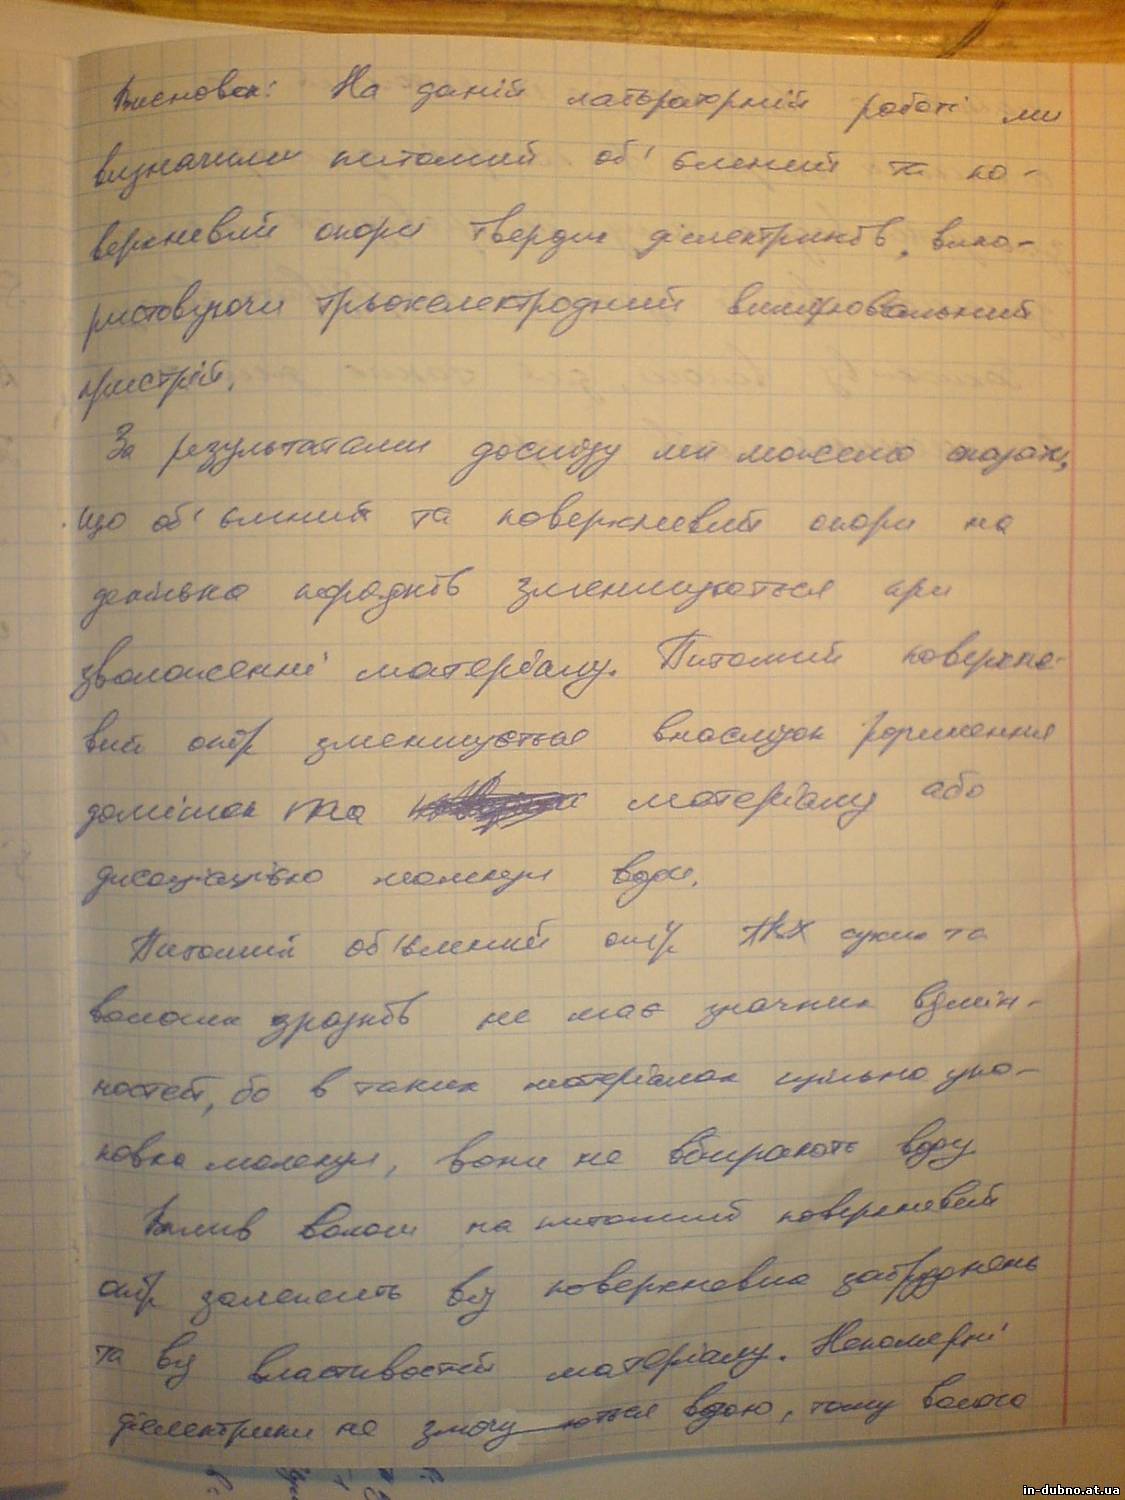 Висновок: На даній лабораторній роботі ми
визначили питомий об'ємний та по-
верхневий опори твердих діелектриків, вико-
ристовуючи трьохелектродний вимірювальний
пристрій.
За результатами досліду ми можемо сказати,
що об'ємний та поверхневий опори на
декілька порядків зменшуються при
зволоженні матеріалу. Питомий поверхне-
вий опір зменшується внаслідок розчинення
домішок та матеріалу або
дисоціацією молекул води.
Питомий об'ємний опір ПВХ сухих та
вологих зразків не має значних відмін-
ностей, бо в таких матеріалах щільна упа-
ковка молекул, вони не вбирають воду.
Вплив вологи на питомий поверхневий
опір залежить від поверхневих забруднень
та від властивостей матеріалу. Неполярні
діелектрики не змочуються водою, тому волога
in-dubno.at.ua